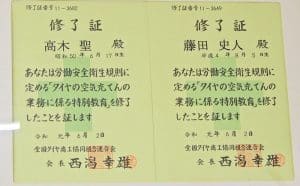 修了証番号11-3682
修了証
高木 聖 殿
昭和50年6月17日生
あなたは労働安全衛生規則に
定める"タイヤの空気充てんの
業務に係る特別教育"を修了
したことを証します
令和 元年 6月 2日
全国タイヤ商工協同組合連合会
会長 西潟幸雄
修了証番号11-3649
修了証
藤田 史人 殿
あなたは労働安全衛生規則に
定める"タイヤの空気充てんの
業務に係る特別教育"を修了
したことを証します
令和 元年 6月 2日
全国タイヤ商工協同組合連合会
会長 西潟幸雄